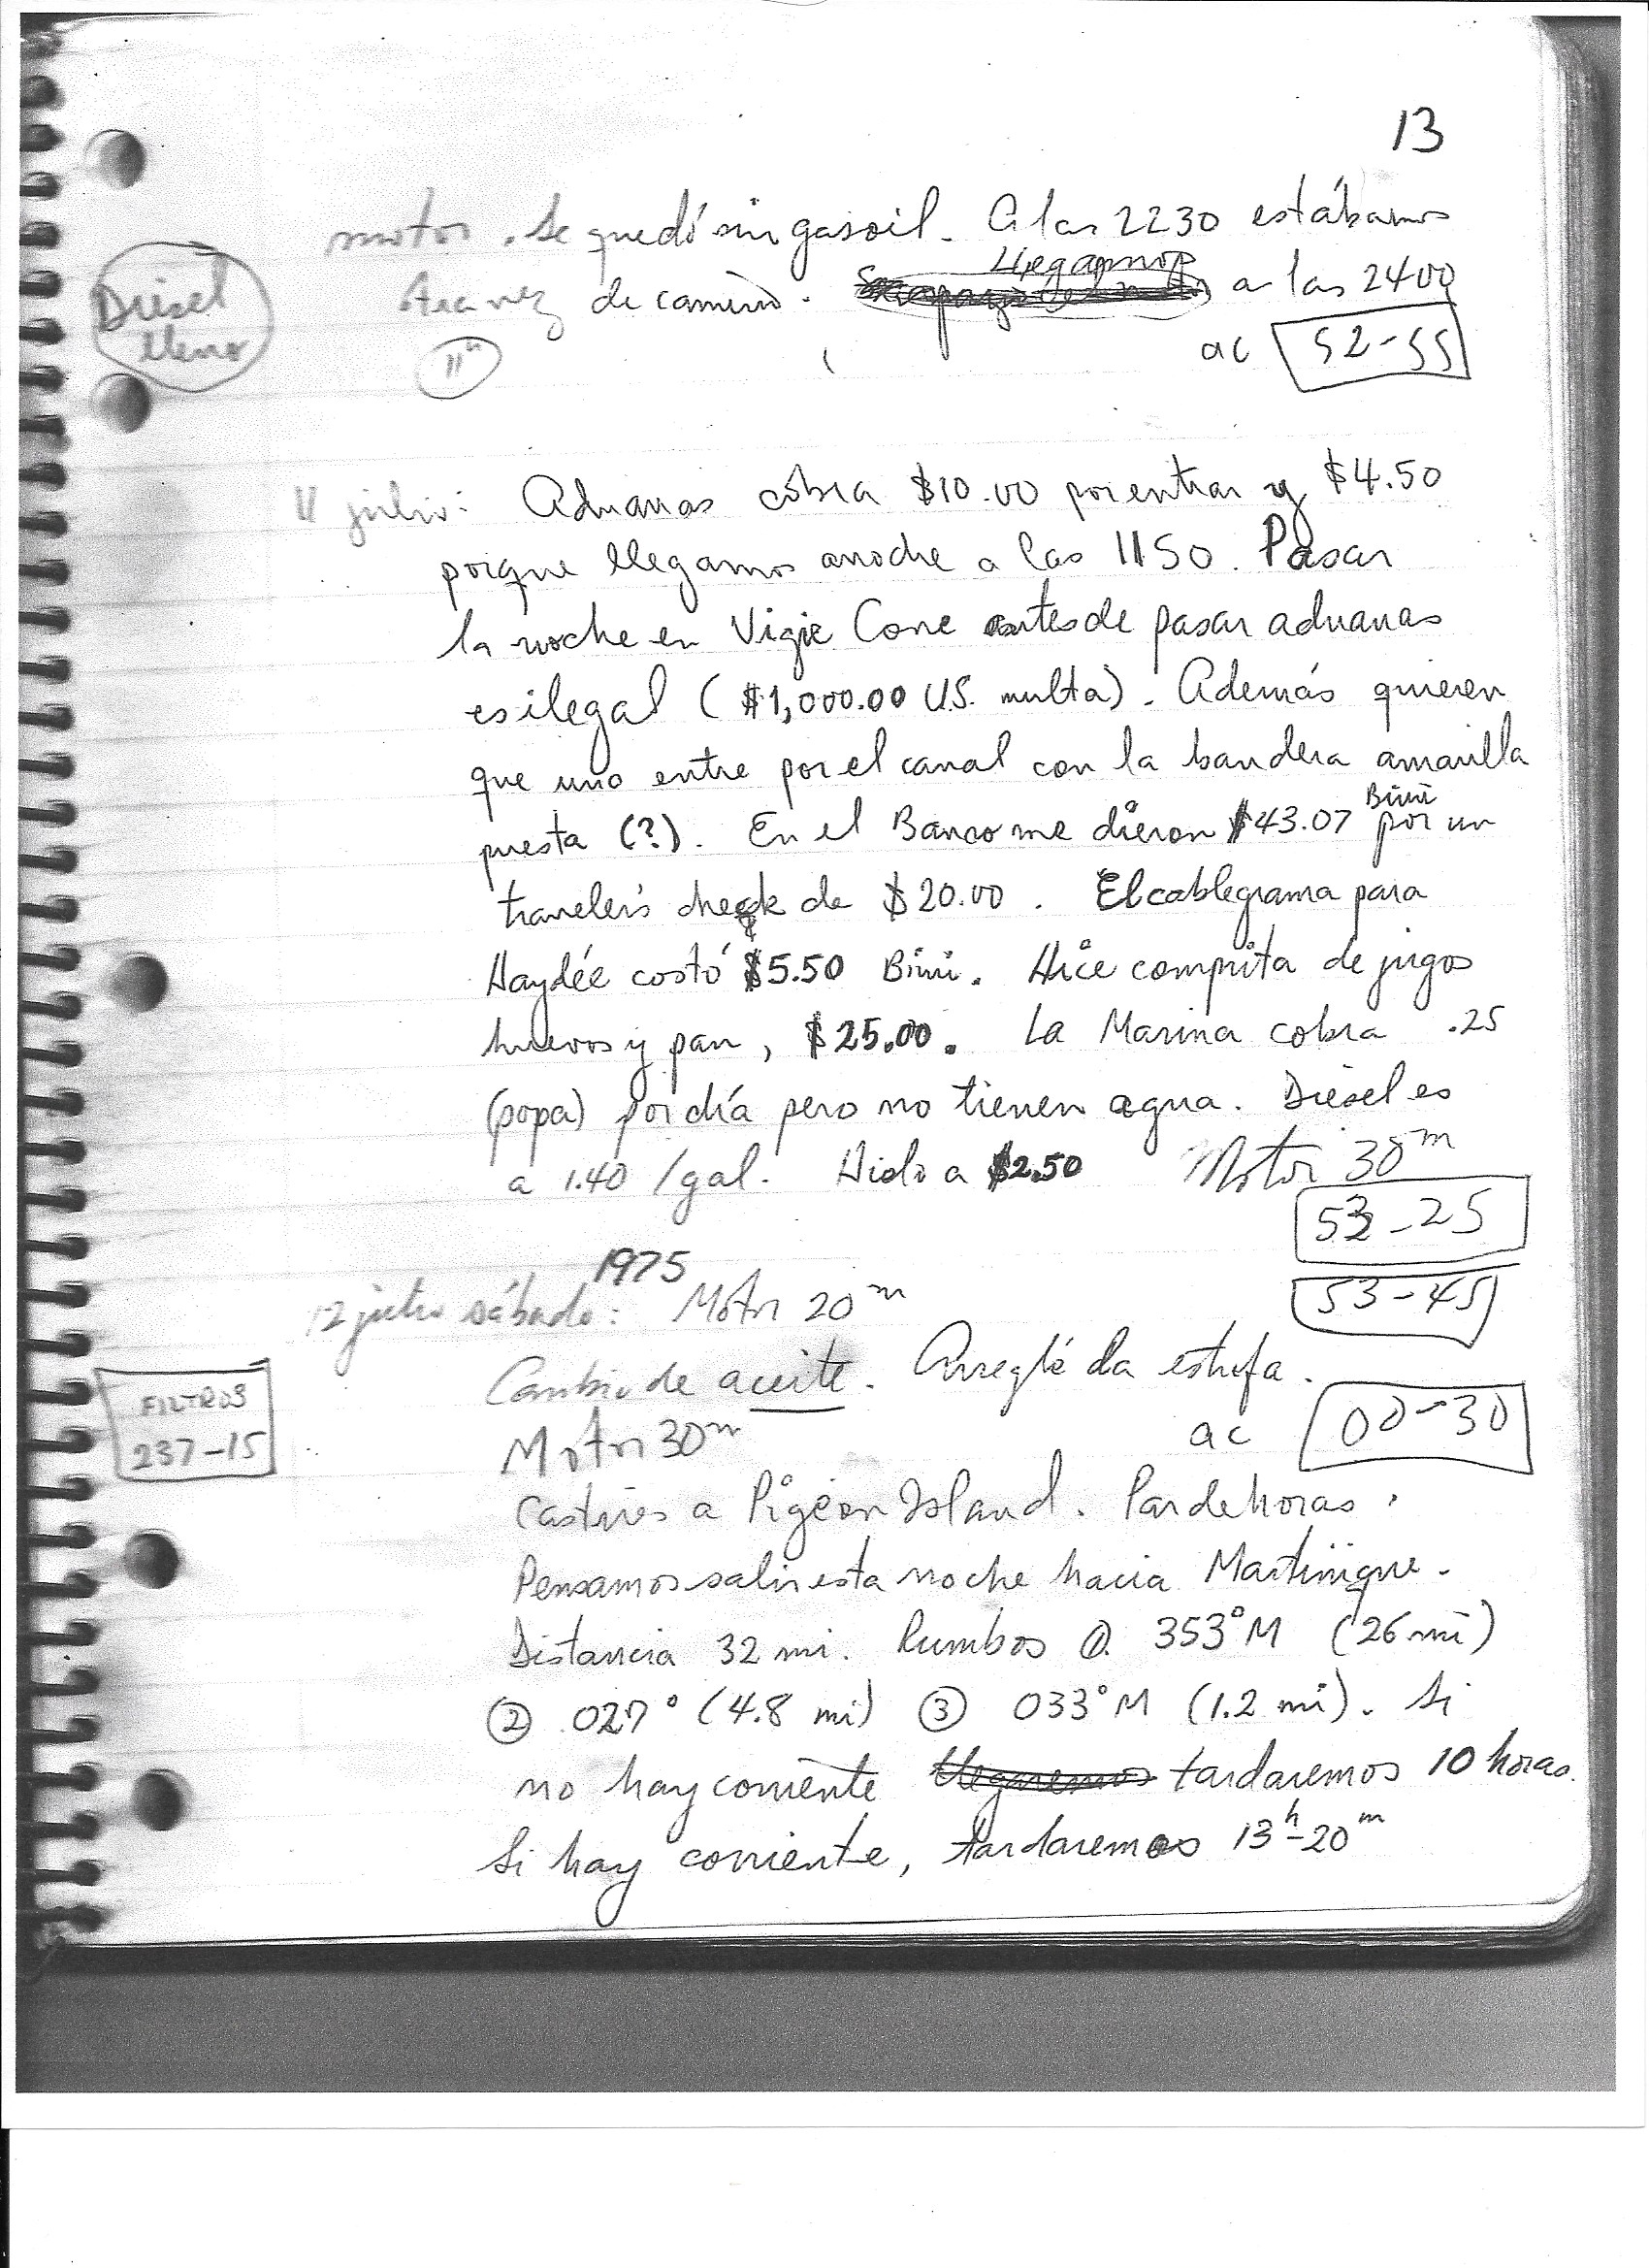 13
motor. Se quedó sin gasoil. A las 2230 estábamos
Diesel
lleno
otra vez de camino. Llegamos a las 2400
11h
ac 52-55
11 julio: Aduanas cobra $10.00 por entrar y $4.50
porque llegamos anoche a las 1150. Pasar
la noche en Vigie Cove antes de pasar aduanas
es ilegal ($1,000.00 U.S. multa). Además quieren
que uno entre por el canal con la bandera amarilla
puesta (?). En el Banco me dieron $43.07 Biwi por un
traveler's check de $20.00. El cablegrama para
Haydée costó $5.50 Biwi. Hice comprita de jugos
huevos y pan, $25.00. La Marina cobra .25
(popa) por día pero no tienen agua. Diesel es
a 1.40 /gal. Hielo a $2.50 Motor 30m
53-25
1975
12 julio sábado: Motor 20m
53-45
Cambio de aceite. Arreglé la estufa.
FILTROS
237-15
Motor 30m ac 00-30
Castries a Pigeon Island. Par de horas.
Pensamos salir esta noche hacia Martinique.
Distancia 32 mi. Rumbos ① 353°M (26 mi)
② 027° (4.8 mi) ③ 033°M (1.2 mi). Si
no hay corriente llegaremos tardaremos 10 horas.
Si hay corriente, tardaremos 13h-20m